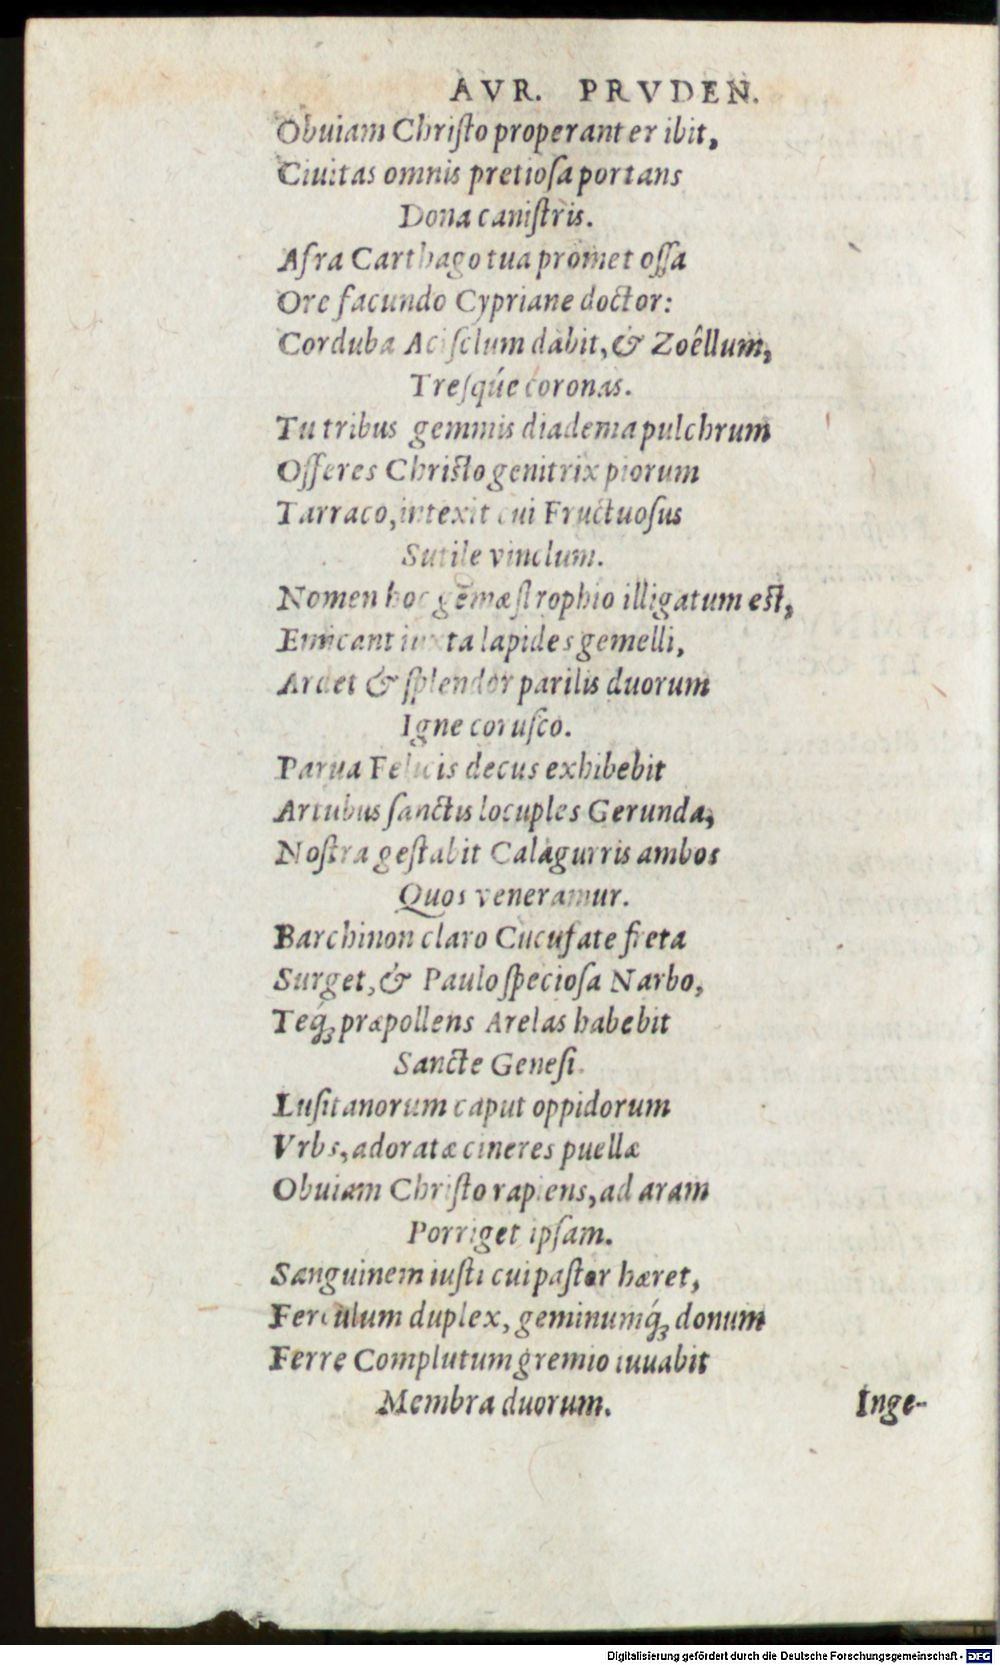 AVR. PRVDEN.
Obuiam Christo properanter ibit,
Ciuitas omnis pretiosa portans
Dona canistris.
Afra Carthago tua promet ossa
Ore facundo Cypriane doctor:
Corduba Acisclum dabit, & Zoêllum,
Tresqúe coronas.
Tu tribus gemmis diadema pulchrum
Offeres Christo genitrix piorum
Tarraco, intexit cui Fructuosus
Sutile vinclum.
Nomen hoc gēmæ strophio illigatum est,
Emicant iuxta lapides gemelli,
Ardet & splendor parilis duorum
Igne corusco.
Parua Felicis decus exhibebit
Artubus sanctis locuples Gerunda,
Nostra gestabit Calagurris ambos
Quos veneramur.
Barchinon claro Cucufate freta
Surget, & Paulo speciosa Narbo,
Teq́; præpollens Arelas habebit
Sancte Genesi.
Lusitanorum caput oppidorum
Vrbs, adoratæ cineres puellæ
Obuiam Christo rapiens, ad aram
Porriget ipsam.
Sanguinem iusti cui pastor hæret,
Ferculum duplex, geminumq́; donum
Ferre Complutum gremio iuuabit
Membra duorum.
Inge-
Digitalisierung gefördert durch die Deutsche Forschungsgemeinschaft - DFG